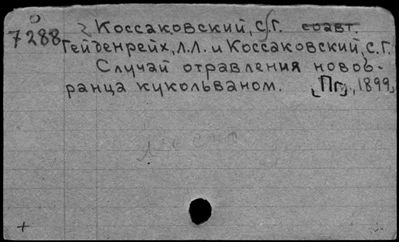 Коссаковский, С.Г. соавт.
7288 Гейденрейх, Л.Л. и Коссаковский, С.Г.
Случай отравления новоб-
ранца кукольваном. [Пг., 1899]